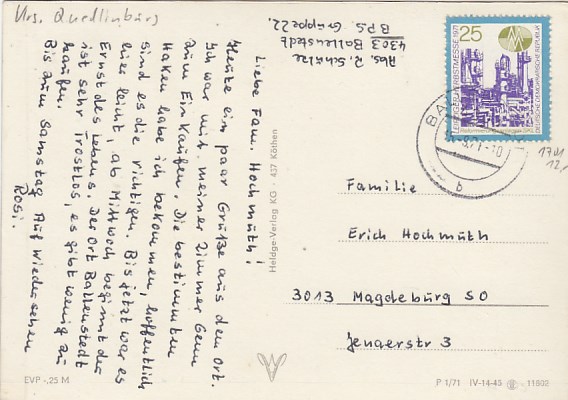 Krs. Quedlinburg
Abs. R. Schulze
4303 Ballenstedt
B.P.S. Gruppe 22.
Liebe Fam. Hochmuth!
Heute ein paar Grüße aus dem Ort.
Ich war mit meiner Zimmer Genn
zum Einkaufen. Die bestimmten
Haken habe ich bekommen, hoffentlich
sind es die richtigen. Bis jetzt war es
hier leicht, ab Mittwoch beginnt der
Ernst des Lebens. Der Ort Ballenstedt
ist sehr trostlos, es gibt wenig zu
kaufen.
Bis zum Samstag Auf Wiedersehen
Rosi.
Heldge-Verlag KG · 437 Köthen
25
LEIPZIGER HERBSTMESSE 1971
DEUTSCHE DEMOKRATISCHE REPUBLIK
b
1701
12,-
Familie
Erich Hochmuth
3013 Magdeburg SO
Jenaerstr 3
EVP -,25 M
P 1/71 IV-14-45 11802